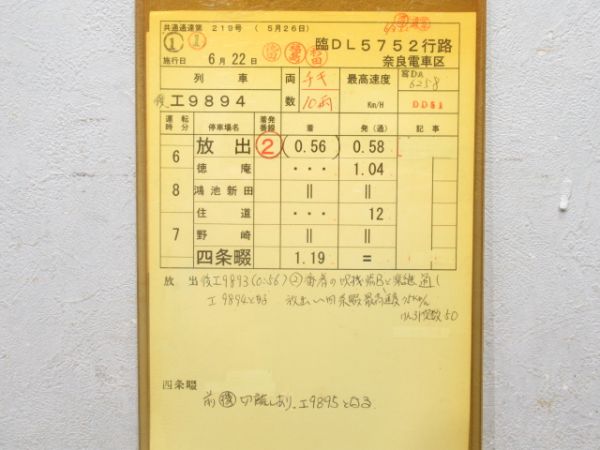 共通通達第 219号 ( 5月26日)
① ①
臨DL5752行路
施行日 6月 22日
奈良電車区
列車 両数 チキ 10両 最高速度 Km/H
6258
工9894
DD51
運転時分 停車場名 着発番線 着 発(通) 記事
放出 ② (0.56) 0.58
6
徳庵 ・・・ 1.04
8 鴻池新田 || ||
住道 ・・・ 12
7 野崎 || ||
四条畷 1.19 =
放出 工9893(0:56)②番着の
工9894となる 放出〜四条畷最高速度75km/h
けん引定数50
四条畷
前 切離しあり、工9895となる